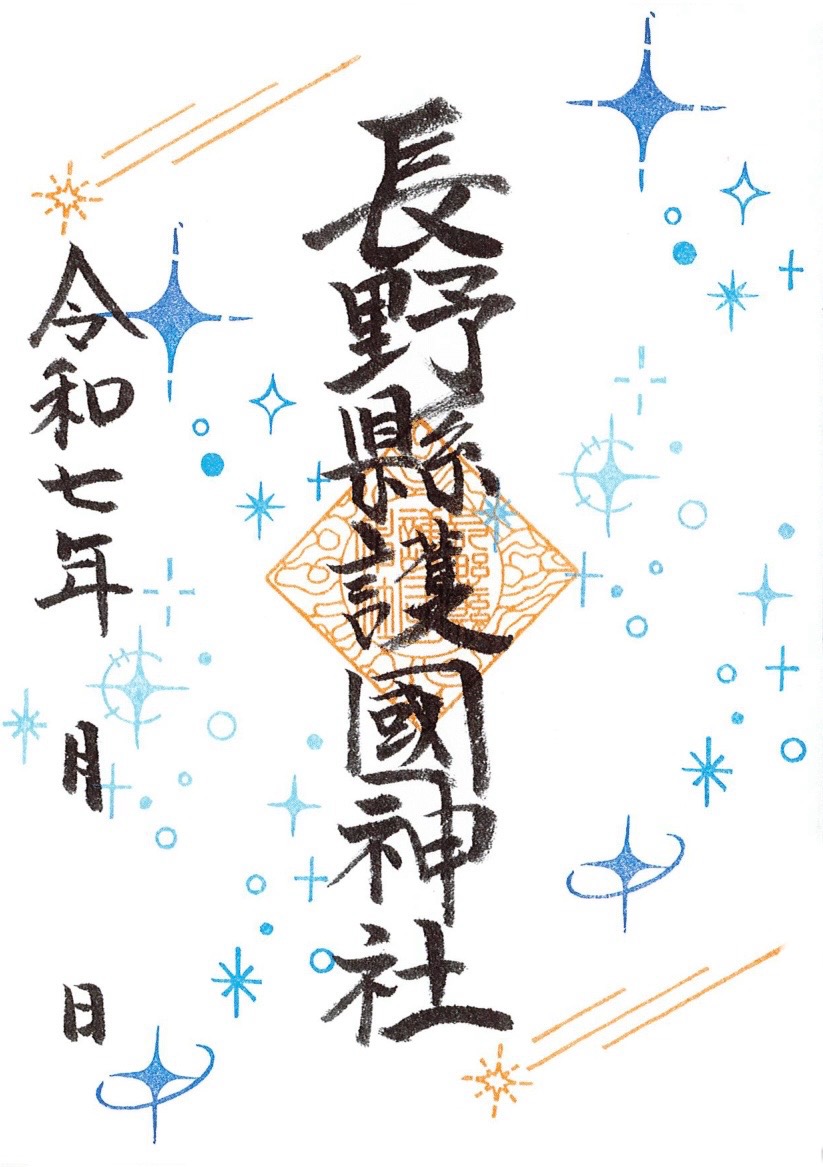 長野縣護國神社
令和七年 月 日